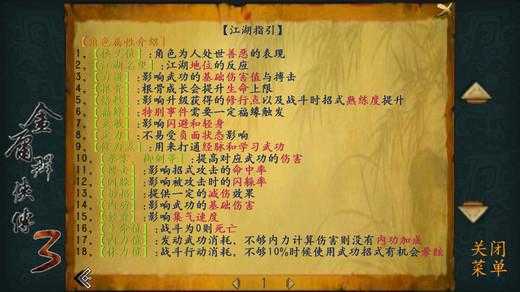 【江湖指引】
（角色属性介绍）
1，【侠义值】:角色为人处世善恶的表现
2，【江湖名望】:江湖地位的反应
3，:影响武功的基础伤害值与搏击
4，【根骨】:根骨成长会提升生命上限
5，:影响升级获得的修行点以及战斗时招式熟练度提升
6，【福缘】:特别事件需要一定福缘触发
7，:影响闪避和轻身
8，:不易受负面状态影响
9，【修行点】:用来打通经脉和学习武功
10，:提高对应武功的伤害
11，:影响招式攻击的命中率
12，:影响被攻击时的闪躲率
13，:提供一定的减伤效果
14，:影响武功的基础伤害
15，:影响集气速度
16，【生命值】:战斗为0则死亡
17，【内力值】:发动武功消耗，不够内力计算伤害则没有内功加成
18，【体力值】:战斗行动消耗，不够10%时候使用武功招式有机会
1
金庸群侠传3
关闭菜单